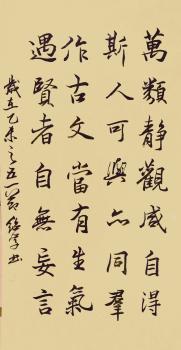 萬類靜觀咸自得
斯人可與亦同羣
作古文當有生氣
遇賢者自無妄言
歲在乙未之五一節 書